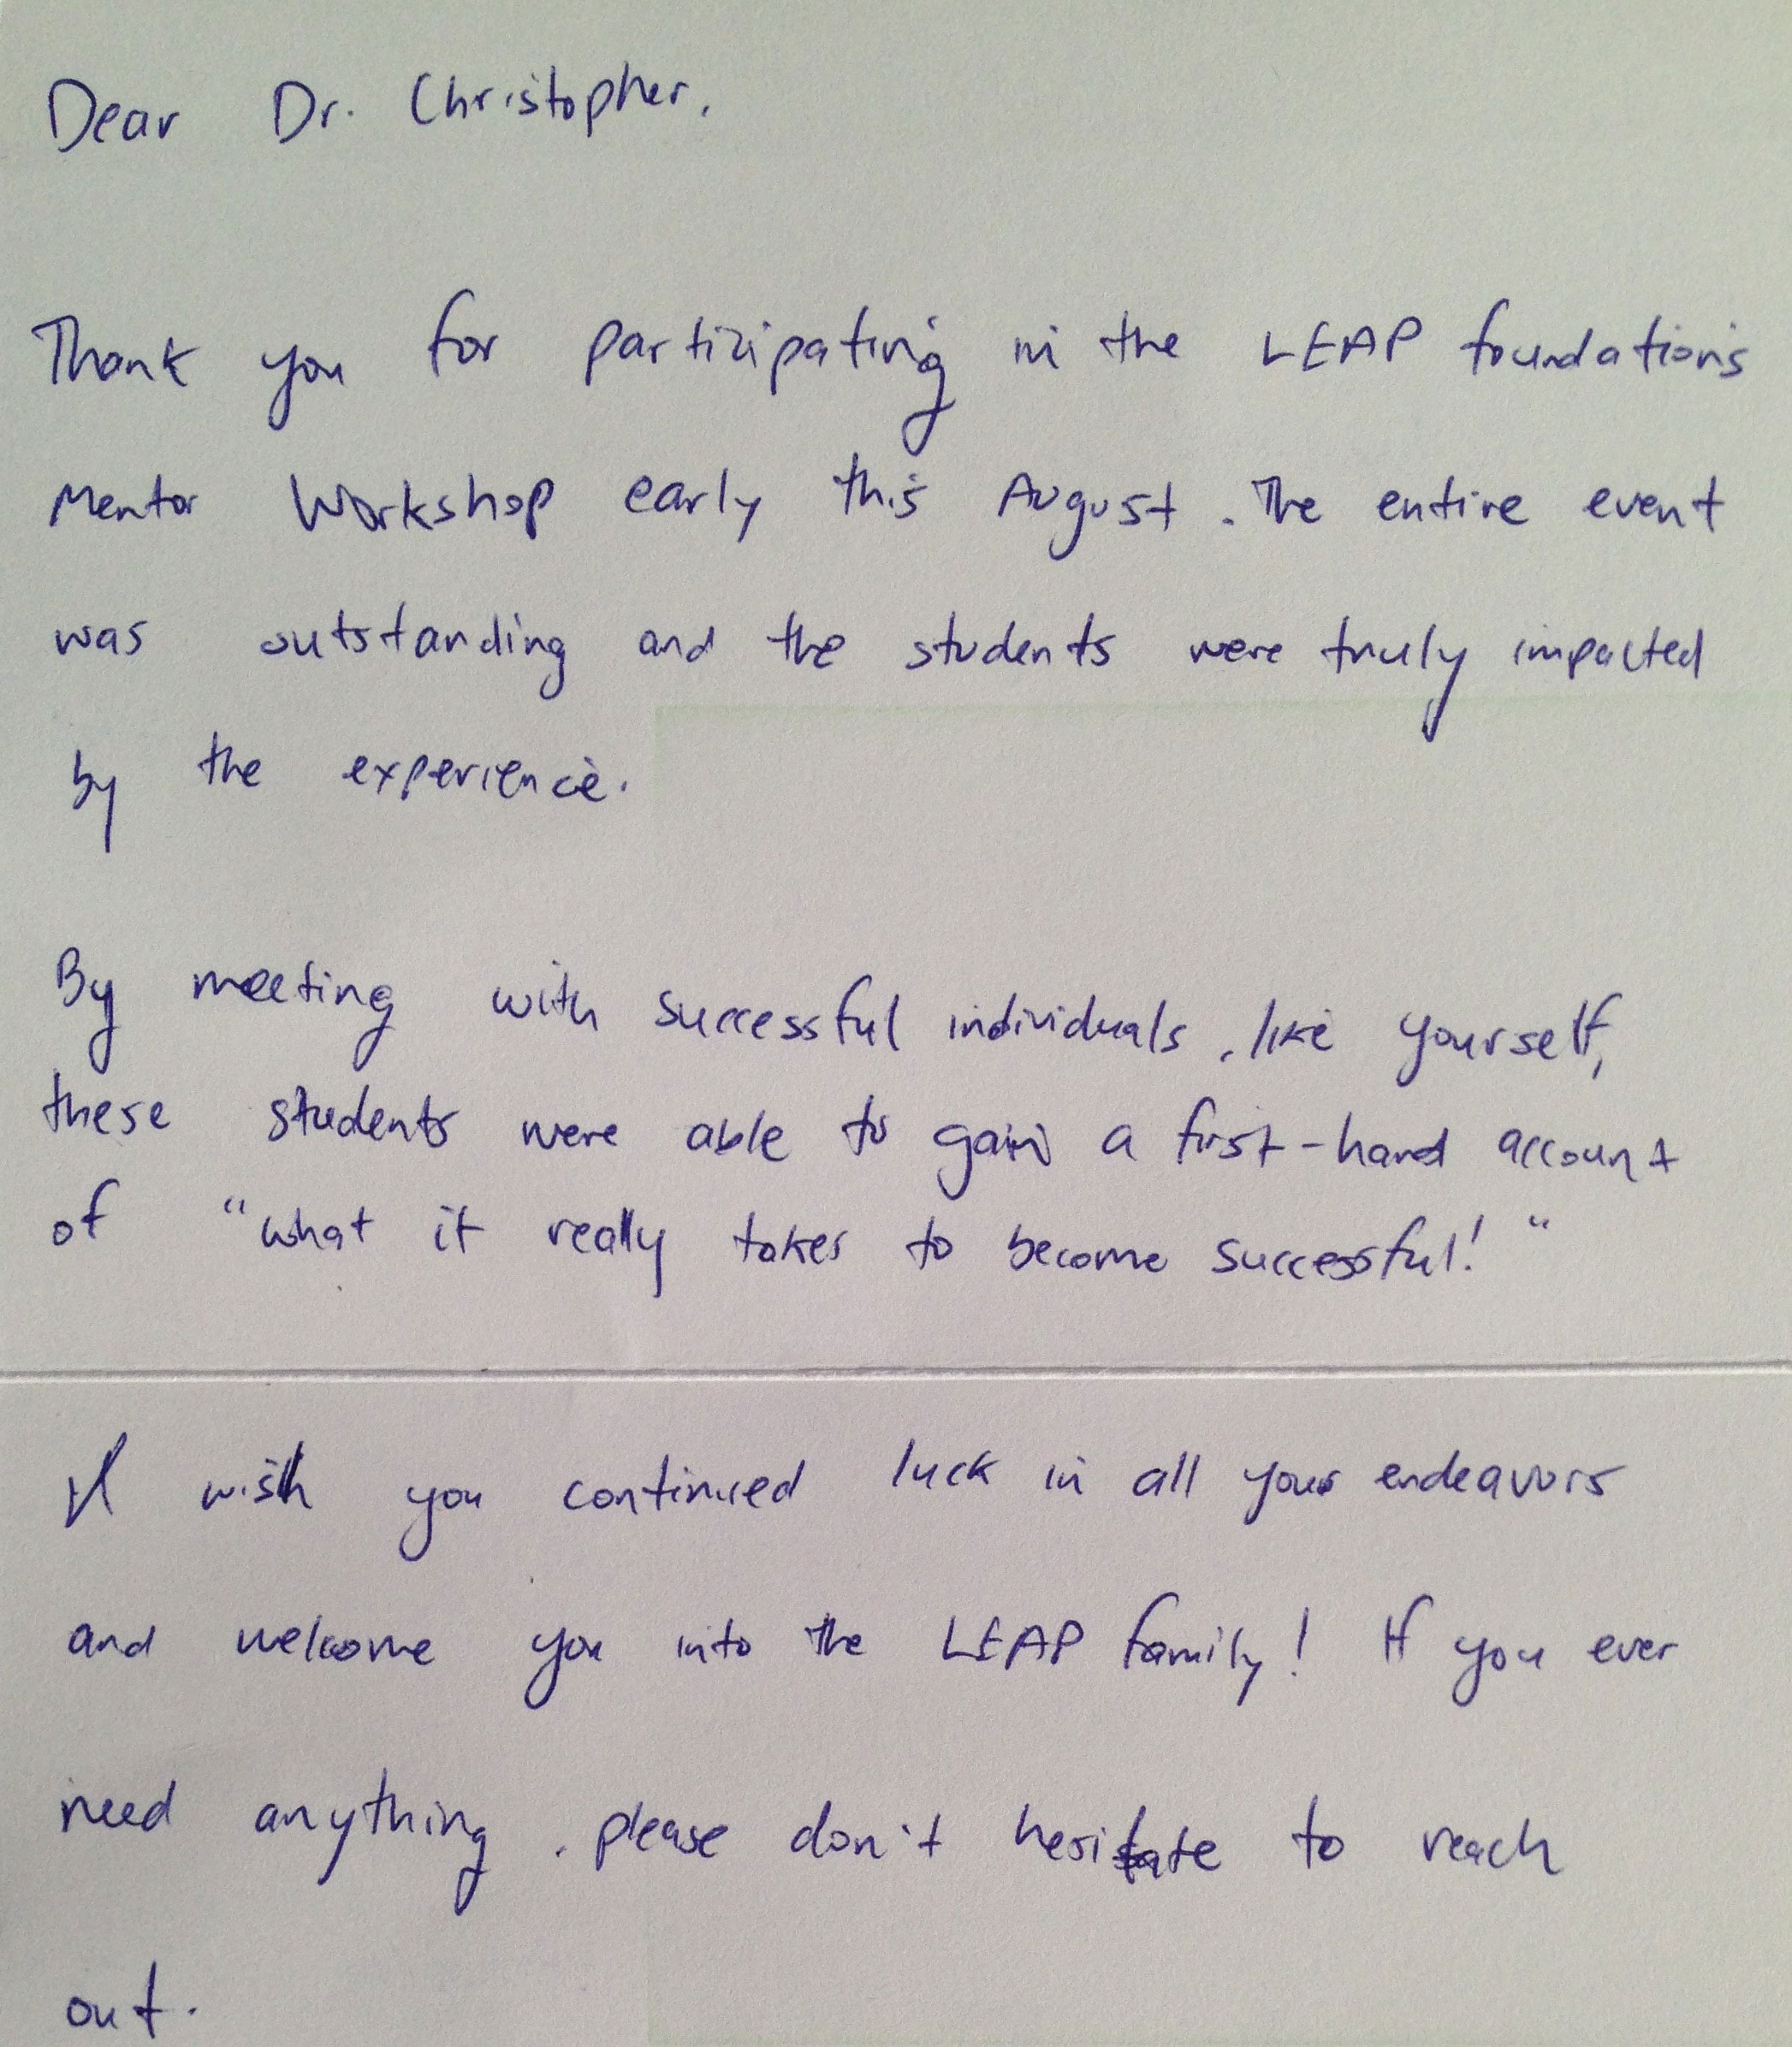 Dear Dr. Christopher,
Thank you for partizipating in the LEAP foundation's
Mentor Workshop early this August. The entire event
was outstanding and the students were truly impacted
by the experience.
By meeting with successful individuals, like yourself,
these students were able to gain a first-hand account
of "what it really takes to become successful!"
I wish you continued luck in all your endeavors
and welcome you into the LEAP family! If you ever
need anything, please don't hesitate to reach
out.